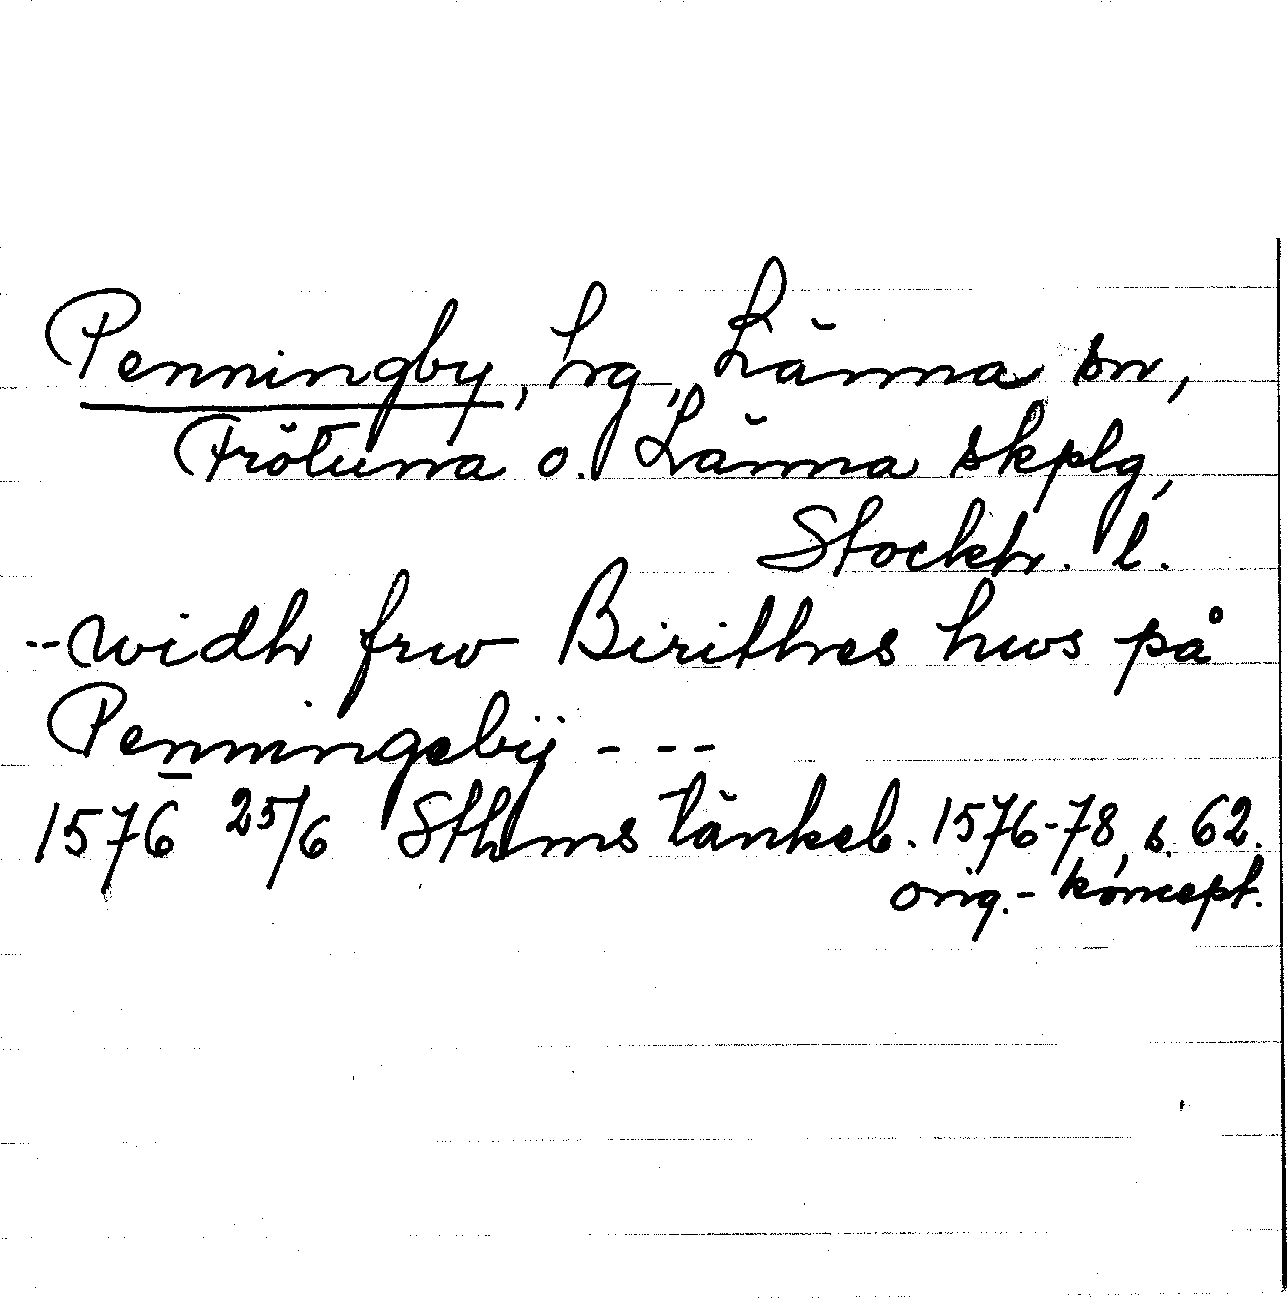 Penningby, hg, Länna sn,
Frötuna o. Länna skplg,
Stockh. l.
--widh frw Birithes hws på
Penningebÿ ---
1576 25/6 Sthms tänkeb. 1576-78, s. 62.
orig.-koncept.